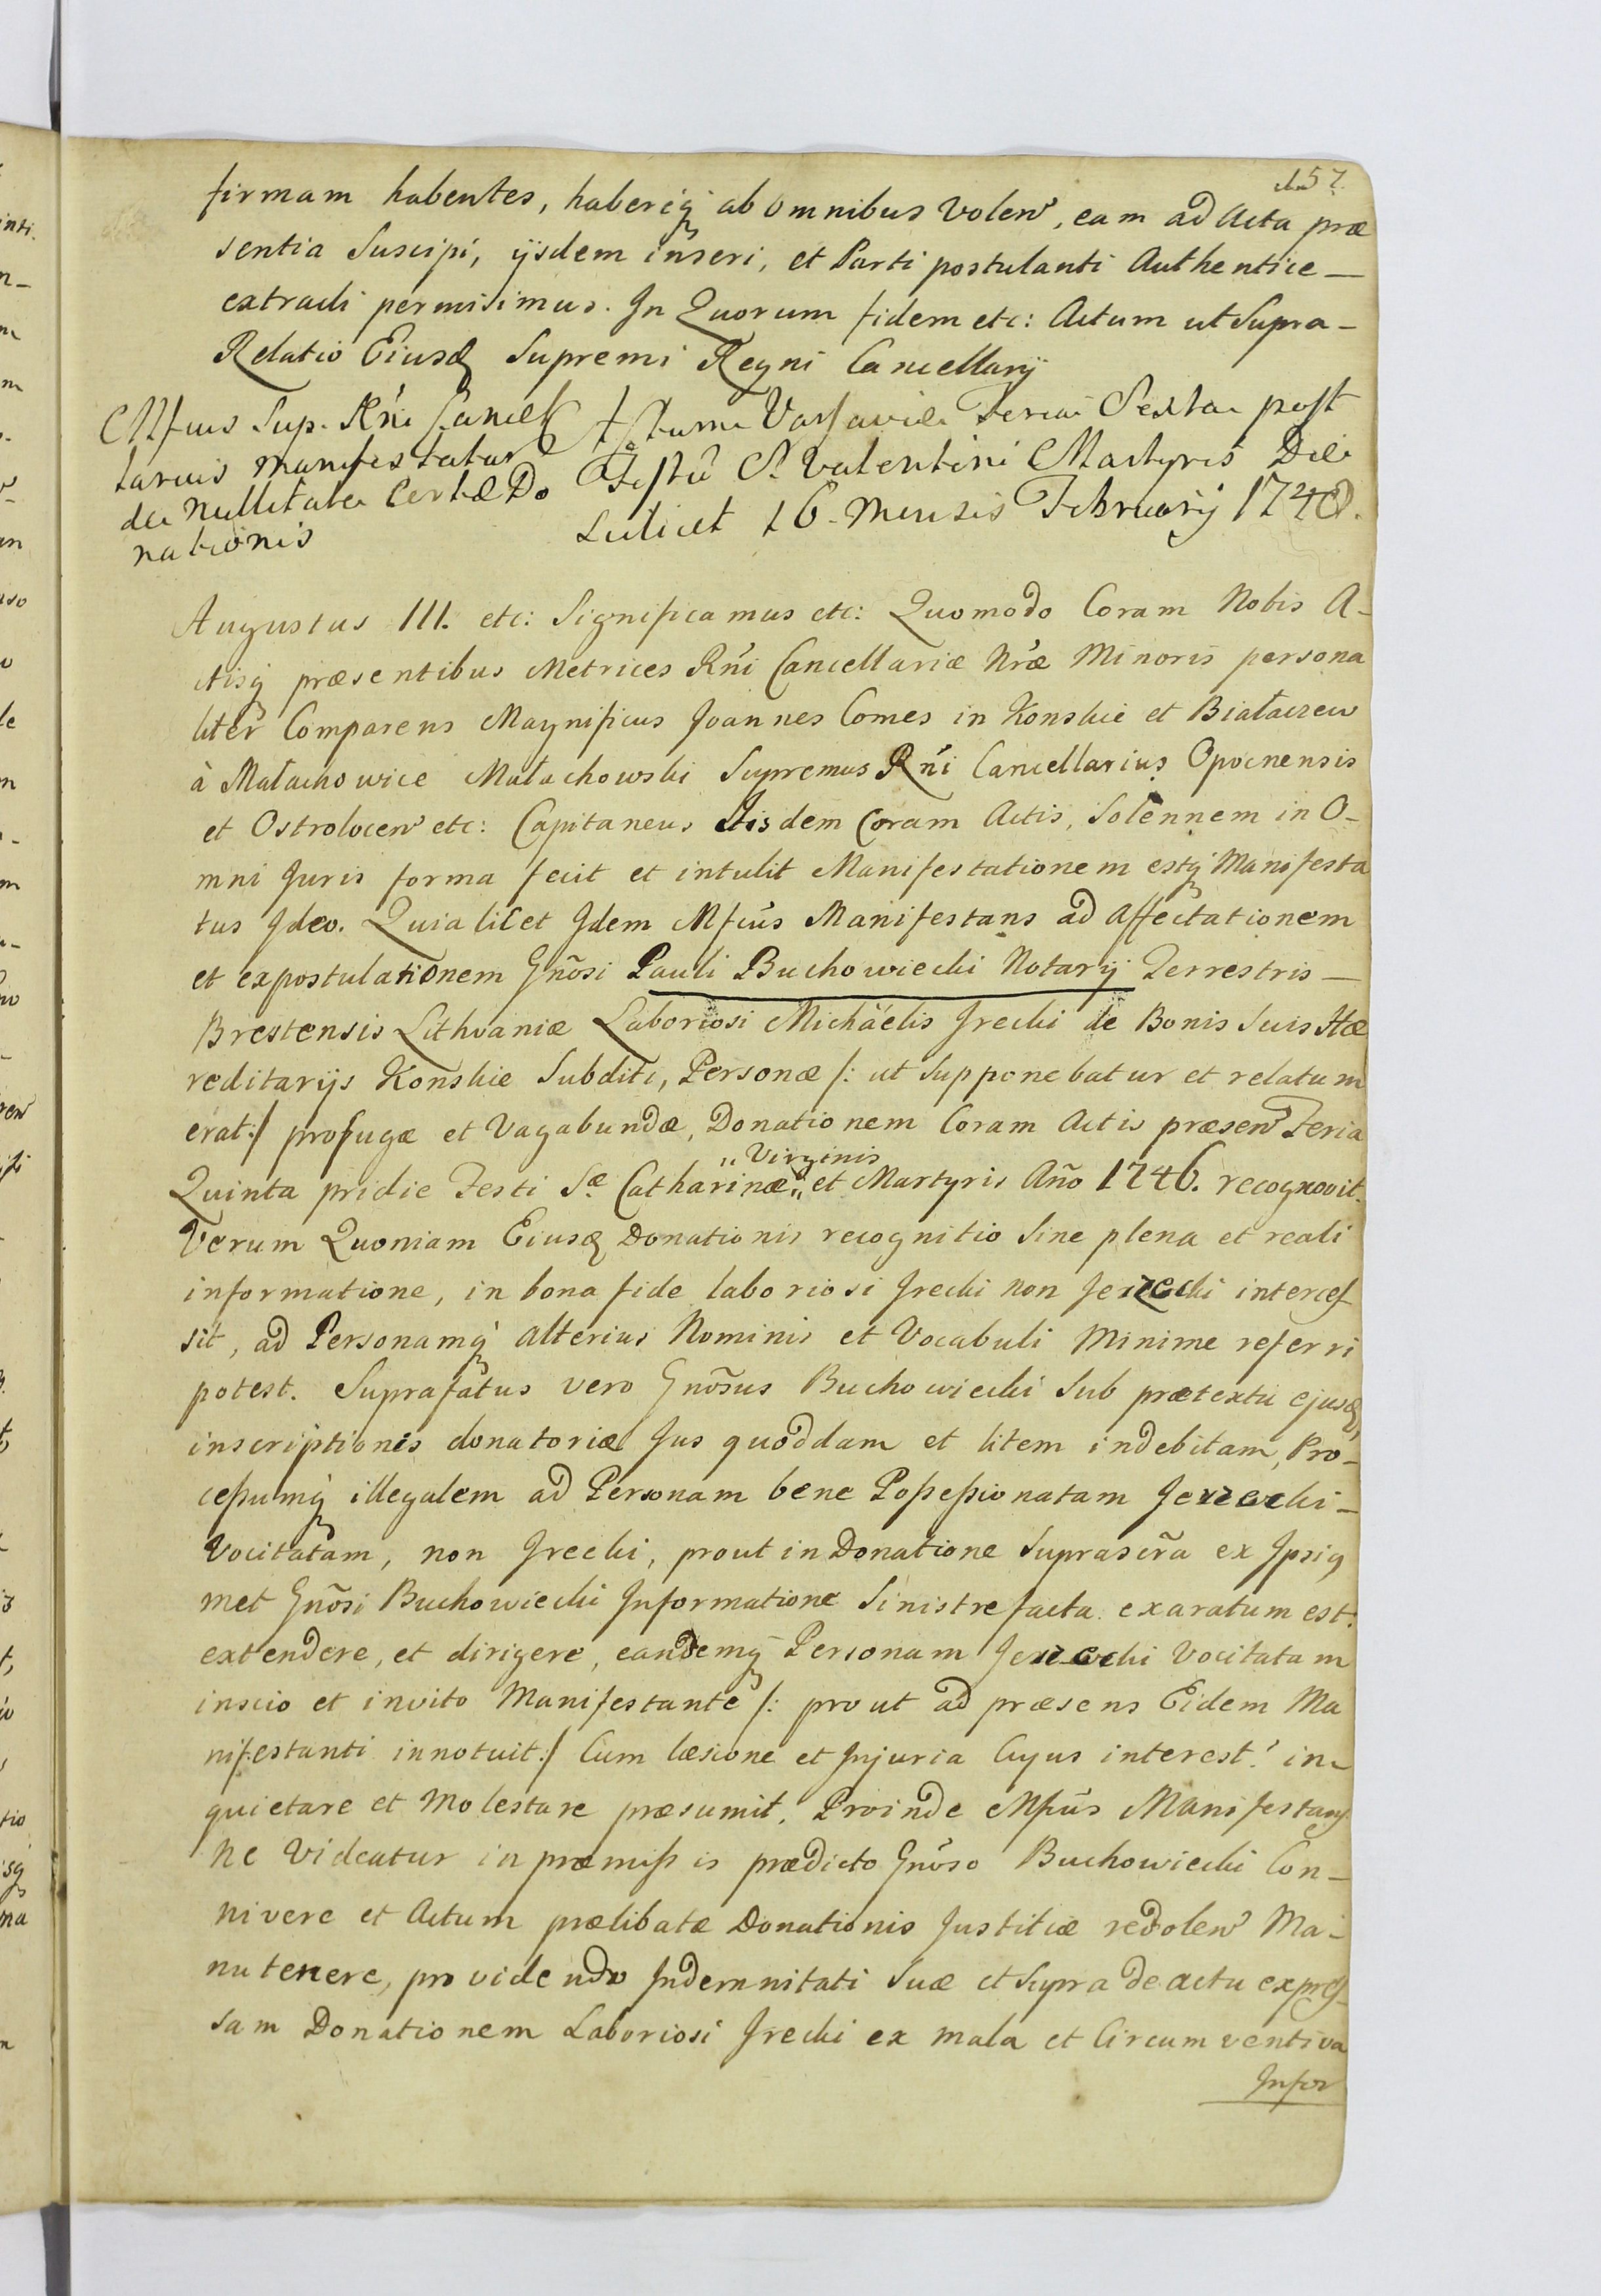 57.
firmam habentes, haberiq ab omnibus volen, eam ad Acta præ
sentia Suscipi, ijsdem inseri, et Parti postulanti Authentice —
extradi permisimus. Jn Quorum fidem etc: Actum ut Supra -
Relatio Eiusd Supremi Regni Cancellarij
Mfcus Sup. Rni Cancel
larius manifestatur
de Nullitate certæ Do
nationis
Actum Varsaviæ Feria Sexta post
Festũ S. Valentini Martyris Die
Scilicet 16. Mensis February 1748.
Augustus III. etc: Significamus etc: Quomodo Coram Nobis A-
ctisq præsentibus Metrices Rńi Cancellariæ Nræ Minoris persona
liter Comparens Magnificus Joannes Comes in Konskie et Białaczew
à Małachowice Małachowski Supremus Rńi Cancellarius Opocnensis
et Ostrolocen etc: Capitaneus Iisdem Coram Actis, Solennem in O-
mni Juris forma fecit et intulit Manifestationem estq Manifesta
tus Jdeo. Quia licet Jdem Mfcus Manifestans ad Affectationem
et expostulationem Gnõsi Pauli Buchowiecki Notarij Terrestris —
Brestensis Lithvaniæ Laboriosi Michäelis Jrecki de Bonis Suis Hæ
reditarijs Konskie Subditi, Personæ /: ut supponebatur et relatum
erat:/ profugæ et Vagabundæ, Donationem Coram Actis præsen Feria
„ Virginis
Quinta pridie Festi Sæ Catharinæ „ et Martyris Año 1746. recognovit.
Verum Quoniam Eiusd Donationis recognitio Sine plena et reali
informatione, in bona fide laboriosi Jrecki non Jerzecki interces
sit, ad Personamq alterius Nominis et Vocabuli Minime referri
potest. Suprafatus vero Gnõsus Buchowiecki Sub prætextu ejusd
inscriptionis donatoriæ Jus quoddam et litem indebitam, Pro-
cessumq illegalem ad Personam bene Possessionatam Jerzecki -
Vocitatam, non Jrecki, prout in Donatione Suprascr̃a ex Jpsiq
met Gnõsi Buchowiecki Jnformatione Sinistre facta exaratum est.
extendere, et dirigere, eandemq Personam Jerzecki Vocitatam
inscio et invito Manifestante /: prout ad præsens Eidem Ma
nifestanti innotuit:/ Cum læsione et Jnjuria Cujus interest. in-
quietare et Molestare præsumit. Proinde Mfcus Manifestans
Ne Videatur in præmissis prædicto Gnõso Buchowiecki Con-
nivere et Actum prælibatæ Donationis Justitiæ redolen Ma-
nutenere, providendo Jndemnitati Suæ et Supra de actu expres-
sam Donationem Laboriosi Jrecki ex mala et Circumventiva
Jnfor